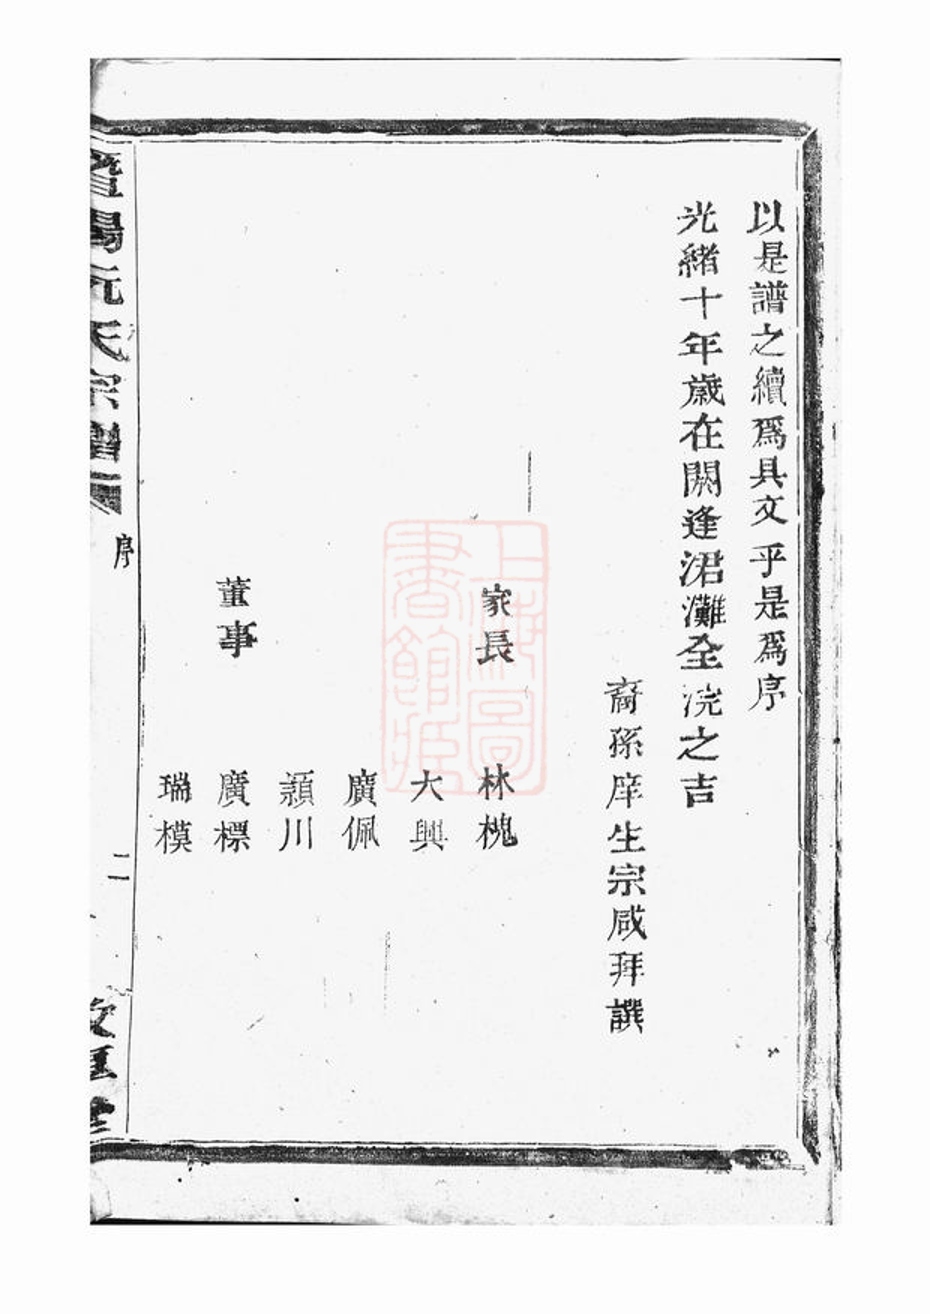 以是譜之續爲具文乎是爲序
光緒十年歲在閼逢涒灘全浣之吉
裔孫庠生宗咸拜譔
家長 林槐
大興
廣佩
潁川
董事 廣標
瑞模
暨陽阮氏宗譜
序
二
上海圖書館藏